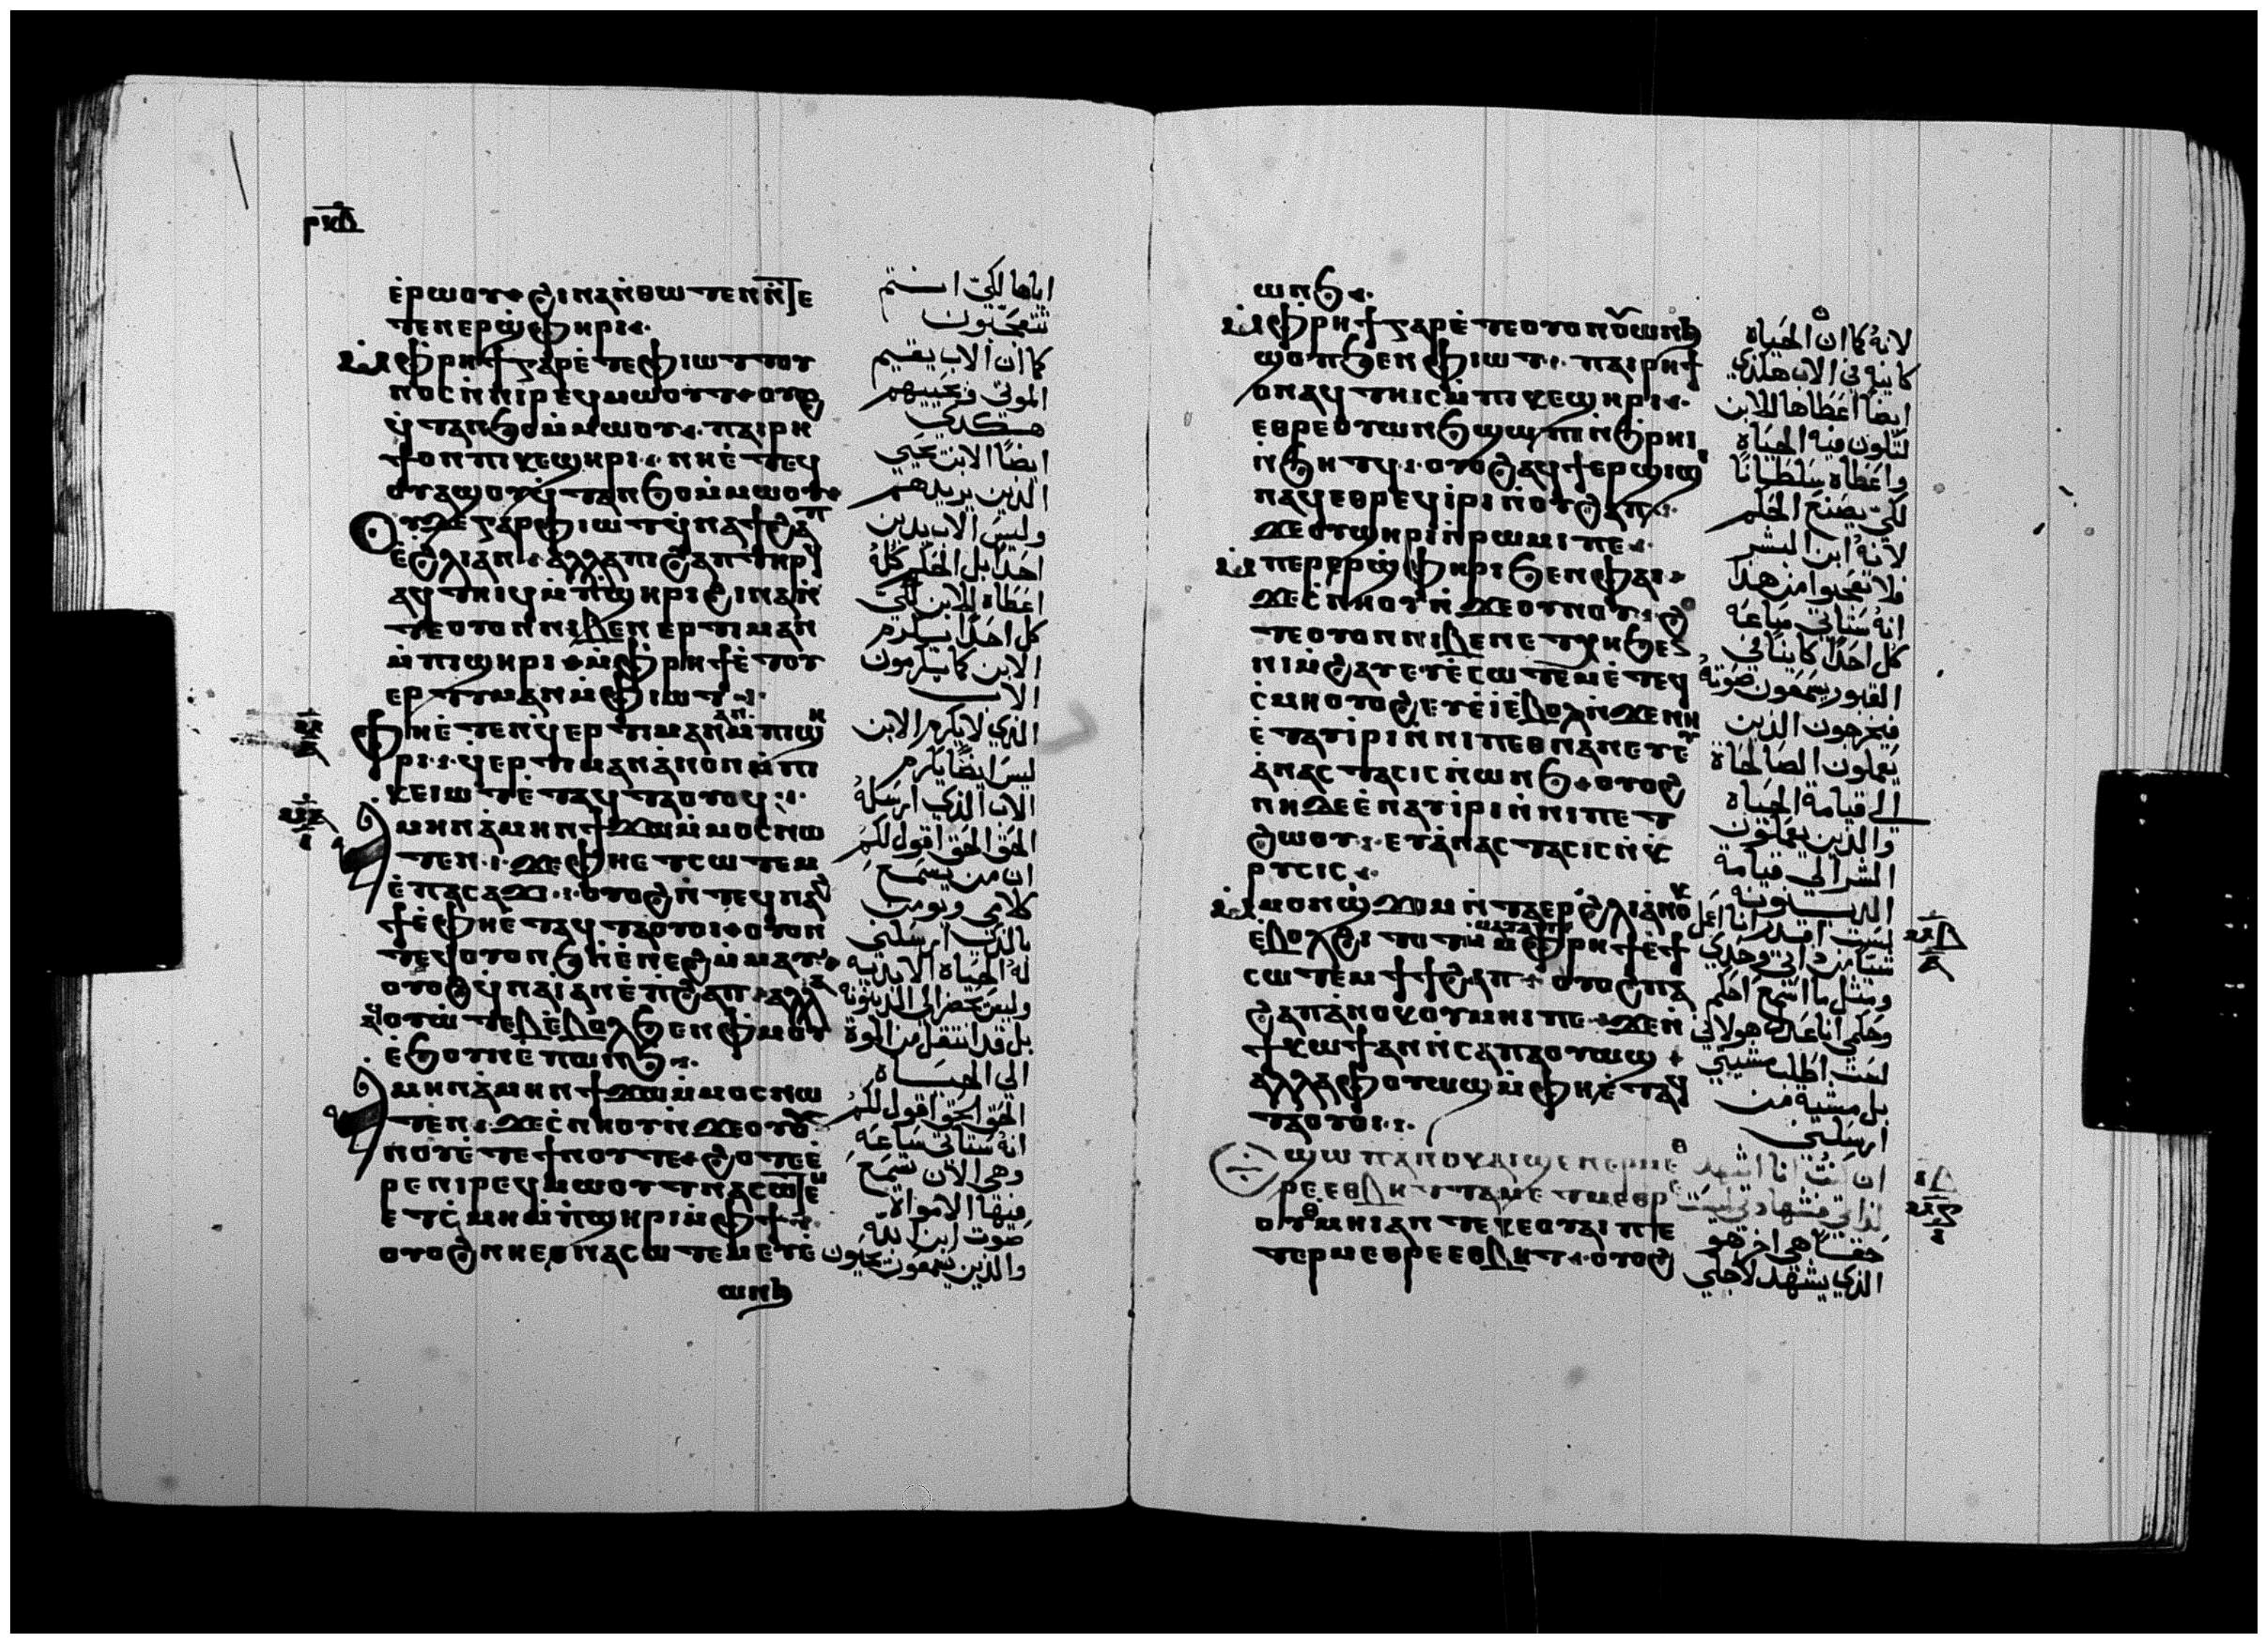 ⲣⲕⲇ
ⲉ̇ⲣⲱⲟⲩ ϩⲓⲛⲁ ⲛ̇ⲑⲱⲧⲉⲛ ⲛ̇ⲧⲉ
ⲧⲉⲛⲉⲣϣ̇ⲫⲏⲣⲓ
ⲙ̇ⲫⲣⲏϯ ⲅⲁⲣ ⲉ̇ⲧⲉ ⲫⲓⲱⲧ ⲧⲟⲩ
ⲛⲟⲥ ⲛ̇ⲛⲓⲣⲉϥⲙⲱⲟⲩⲧ ⲟⲩⲟϩ
ϥ̇ⲧⲁⲛϧⲟ ⲙ̇ⲙⲱⲟⲩ ⲡⲁⲓⲣⲏ
ϯ ⲟⲛ ⲡⲓⲕⲉϣⲏⲣⲓ ⲛⲏ ⲉ̇ⲧⲉϥ
ⲟⲩⲁϣⲟⲩ ϥ̇ⲧⲁⲛϧⲟ ⲙ̇ⲙⲱⲟⲩ
ⲟⲩⲇⲉ ⲅⲁⲣ ⲫⲓⲱⲧ ϥ̇ⲛⲁϯϩⲁⲡ
ⲉ̇ϩⲗⲓ ⲁⲛ ⲁⲗⲗⲁ ⲡⲓϩⲁⲡ ⲧⲏⲣϥ
ⲁϥⲧⲏⲓϥ ⲙ̇ⲡϣⲏⲣⲓ ϩⲓⲛⲁ ⲛ̇
ⲧⲉ ⲟⲩⲟⲛ ⲛⲓⲃⲉⲛ ⲉⲣⲧⲓⲙⲁⲛ
ⲙ̇ⲡⲓϣⲏⲣⲓ ⲙ̇ⲫⲣⲏϯ ⲉ̇ⲧⲟⲩ
ⲉⲣⲧⲓⲙⲁⲛ ⲙ̇ⲫⲓⲱⲧ
ⲫⲏ ⲉ̇ⲧⲉⲛϥ̇ⲉⲣⲧⲓⲙⲁⲛ ⲁⲛ ⲙ̇ⲡⲓϣⲏ
ⲣⲓ ϥ̇ⲉⲣⲧⲓⲙⲁⲛ ⲁⲛ ⲟⲛ ⲙ̇ⲡⲓ
ⲕⲉⲓⲱⲧ ⲉ̇ⲧⲁϥⲧⲁⲟⲩⲟϥ
ⲁⲙⲏⲛ ⲁⲙⲏⲛ ϯϫⲱ ⲙ̇ⲙⲟⲥ ⲛⲱ
ⲧⲉⲛ ϫⲉ ⲫⲏ ⲉⲧⲥⲱⲧⲉⲙ
ⲉ̇ⲡⲁⲥⲁϫⲓ ⲟⲩⲟϩ ⲛ̇ⲧⲉϥⲛⲁϩ
ϯ ⲉ̇ⲫⲏ ⲉ̇ⲧⲁϥⲧⲁⲟⲩⲟⲓ ⲟⲩⲟⲛ
ⲧⲉϥ ⲟⲩⲱⲛϧ ⲛ̇ⲉⲛⲉϩ ⲙ̇ⲙⲁⲩ
ⲟⲩⲟϩ ϥ̇ⲛⲁⲓ̇ ⲁⲛ ⲉ̇ⲡϩⲁⲡ ⲁⲗⲗⲁ
ⲁϥⲟⲩⲱⲧⲉⲃ ⲉ̇ⲃⲟⲗϧⲉⲛ ⲫⲙⲟⲩ
ⲉ̇ϧⲟⲩⲛ ⲉ̇ⲡⲱⲛϧ
ⲁⲙⲏⲛ ⲁⲙⲏⲛ ϯϫⲱ ⲙ̇ⲙⲟⲥ ⲛⲱ
ⲧⲉⲛ ϫⲉ ⲥ̇ⲛⲏⲟⲩ ⲛ̇ϫⲉ ⲟⲩⲟⲩ
ⲛⲟⲩ ⲉ̇ⲧⲉ ϯⲛⲟⲩ ⲧⲉ ϩⲟⲧⲉ ⲉ̇
ⲣⲉ ⲛⲓⲣⲉϥⲙⲱⲟⲩⲧ ⲛⲁⲥⲱⲧⲉⲙ
ⲉⲧⲥ̇ⲙⲏ ⲙ̇ⲡϣⲏⲣⲓ ⲙ̇ⲫϯ
ⲟⲩⲟϩ ⲛⲏ ⲉⲑⲛⲁⲥⲱⲧⲉⲙ ⲉⲩⲉ̇
ⲱⲛϧ
اياها لكي انتم
تتعجبون
كما ان الاب يقيم
الموتي فيحييهم
هكذي
ايضًا الابن يحيي
الذين يريدهم
وليس الاب يدين
احدًا بل الحكم كله
اعطاه للابن لكي
كل احدًا يكرم
الابن كما يكرمون
الاب
الذي لا يكرم الابن
ليس ايضًا يكرم
الاب الذي ارسله
الحق الحق اقول لكم
ان من يسمع
كلامي ويومن
بالذي ارسلني
له الحياة الابدية
وليس يحضر الي الدينونة
بل قد انتقل من الموة
الي الحياة
الحق الحق اقول لكم
انه ستاتي ساعه
وهي الان تسمع
فيها الاموات
صوت ابن الله
والذين يسمعون يحيون
ⲱⲛϧ
ⲙ̇ⲫⲣⲏϯ ⲅⲁⲣ ⲉ̇ⲧⲉ ⲟⲩⲟⲛ ⲟⲩⲱⲛϧ
ϣⲟⲡ ϧⲉⲛ ⲫⲓⲱⲧ ⲡⲁⲓⲣⲏϯ
ⲟⲛ ⲁϥⲧⲏⲓⲥ ⲙ̇ⲡⲓⲕⲉϣⲏⲣⲓ
ⲉⲑⲣⲉ ⲟⲩⲱⲛϧ ϣⲱⲡⲓ ⲛ̇ϧⲣⲏⲓ
ⲛ̇ϧⲏⲧϥ ⲟⲩⲟϩ ⲁϥϯⲉⲣϣⲓϣⲓ
ⲛⲁϥ ⲉⲑⲣⲉϥⲓ̇ⲣⲓ ⲛ̇ⲟⲩϩⲁⲡ
ϫⲉ ⲟⲩϣⲏⲣⲓ ⲛ̇ⲣⲱⲙⲓ ⲡⲉ
ⲙ̇ⲡⲉⲣⲉⲣϣ̇ⲫⲏⲣⲓ ϧⲉⲛ ⲫⲁⲓ
ϫⲉ ⲥ̇ⲛⲏⲟⲩ ⲛ̇ϫⲉ ⲟⲩⲛⲟⲩ ϩⲟ
ⲧⲉ ⲟⲩⲟⲛ ⲛⲓⲃⲉⲛ ⲉⲧⲭⲏ ϧⲉⲛ
ⲛⲓⲙ̇ϩⲁⲩ ⲉⲩⲉ̇ⲥⲱⲧⲉⲙ ⲉ̇ⲧⲉϥ
ⲥ̇ⲙⲏ ⲟⲩⲟϩ ⲉⲩⲉ̇ⲓ̇ ⲉ̇ⲃⲟⲗ ⲛ̇ϫⲉ ⲛⲏ
ⲉ̇ⲧⲁⲩⲓ̇ⲣⲓ ⲛ̇ⲛⲓⲡⲉⲑⲛⲁⲛⲉⲩ ⲉⲩ
ⲁ̇ⲛⲁⲥⲧⲁⲥⲓⲥ ⲛ̇ⲱⲛϧ ⲟⲩⲟϩ
ⲛⲏ ⲇⲉ ⲉ̇ⲛⲁⲩⲓ̇ⲣⲓ ⲛ̇ⲛⲓⲡⲉⲧ
ϩⲱⲟⲩ ⲉⲩⲁ̇ⲛⲁⲥⲧⲁⲥⲓⲥ ⲛ̇ⲕ
ⲣⲩⲥⲓⲥ
ⲙ̇ⲙⲟⲛ ϣ̇ϫⲟⲙ ⲛ̇ⲧⲁⲉⲣϩⲗⲓ ⲁ̇ⲛⲟⲕ
ⲉ̇ⲃⲟⲗϩⲓⲧⲟⲧ ⲙ̇ⲙⲁⲩⲁⲧ ⲙ̇ⲫⲣⲏϯ ⲉ̇ϯ
ⲥⲱⲧⲉⲙ ϯϯϩⲁⲡ ⲟⲩⲟϩ ⲡⲁ
ϩⲁⲡ ⲁ̇ⲛⲟⲕ ⲟⲩⲙⲏⲓ ⲡⲉ ϫⲉ ⲛ̇
ϯⲕⲱϯ ⲁⲛ ⲛ̇ⲥⲁ ⲡⲁⲟⲩⲱϣ
ⲁⲗⲗⲁ ⲫⲟⲩⲱϣ ⲙ̇ⲫⲏ ⲉ̇ⲧⲁϥ
ⲧⲁⲟⲩⲟⲓ
ⲉϣⲱⲡ ⲁⲛⲟⲕ ⲁⲓϣⲁⲛⲉⲣⲙⲉⲑ
ⲣⲉ ⲉⲑⲃⲏⲧ ⲧⲁⲙⲉⲧⲙⲉⲑⲣⲉ
ⲟⲩⲙⲏⲓ ⲁⲛ ⲧⲉ ⲕⲉⲟⲩⲁⲓ ⲡⲉ
ⲧⲉⲣⲙⲉⲑⲣⲉ ⲉⲑⲃⲏⲧ ⲟⲩⲟϩ
لانه كما ان الحياه
كاينه في الاب هكذي
ايضًا اعطاها للابن
لتكون فيه الحياة
واعطاه سلطانًا
لكي يصنع الحكم
لانه ابن البشر
فلا تعجبوا من هذا
انه ستاتي ساعه
كل احدًا كاينًا في
القبور يسمعون صوته
فيخرجون الذين
يعملون الصالحاة
الي قيامة الحياه
والذين يعملون
الشر الي قيامة
الدينونه
لست اقدر انا اعمل
شيًا من ذاتي وحدي
ومثل ما اسمع احكم
وحكمي انا عدل هو لاني
لست اطلب مشيتي
بل مشية من
ارسلني
ان كنت انا اشهد
لذاتي فشهادتي ليست
حقًا هي اخر هو
الذي يشهد لاجلي